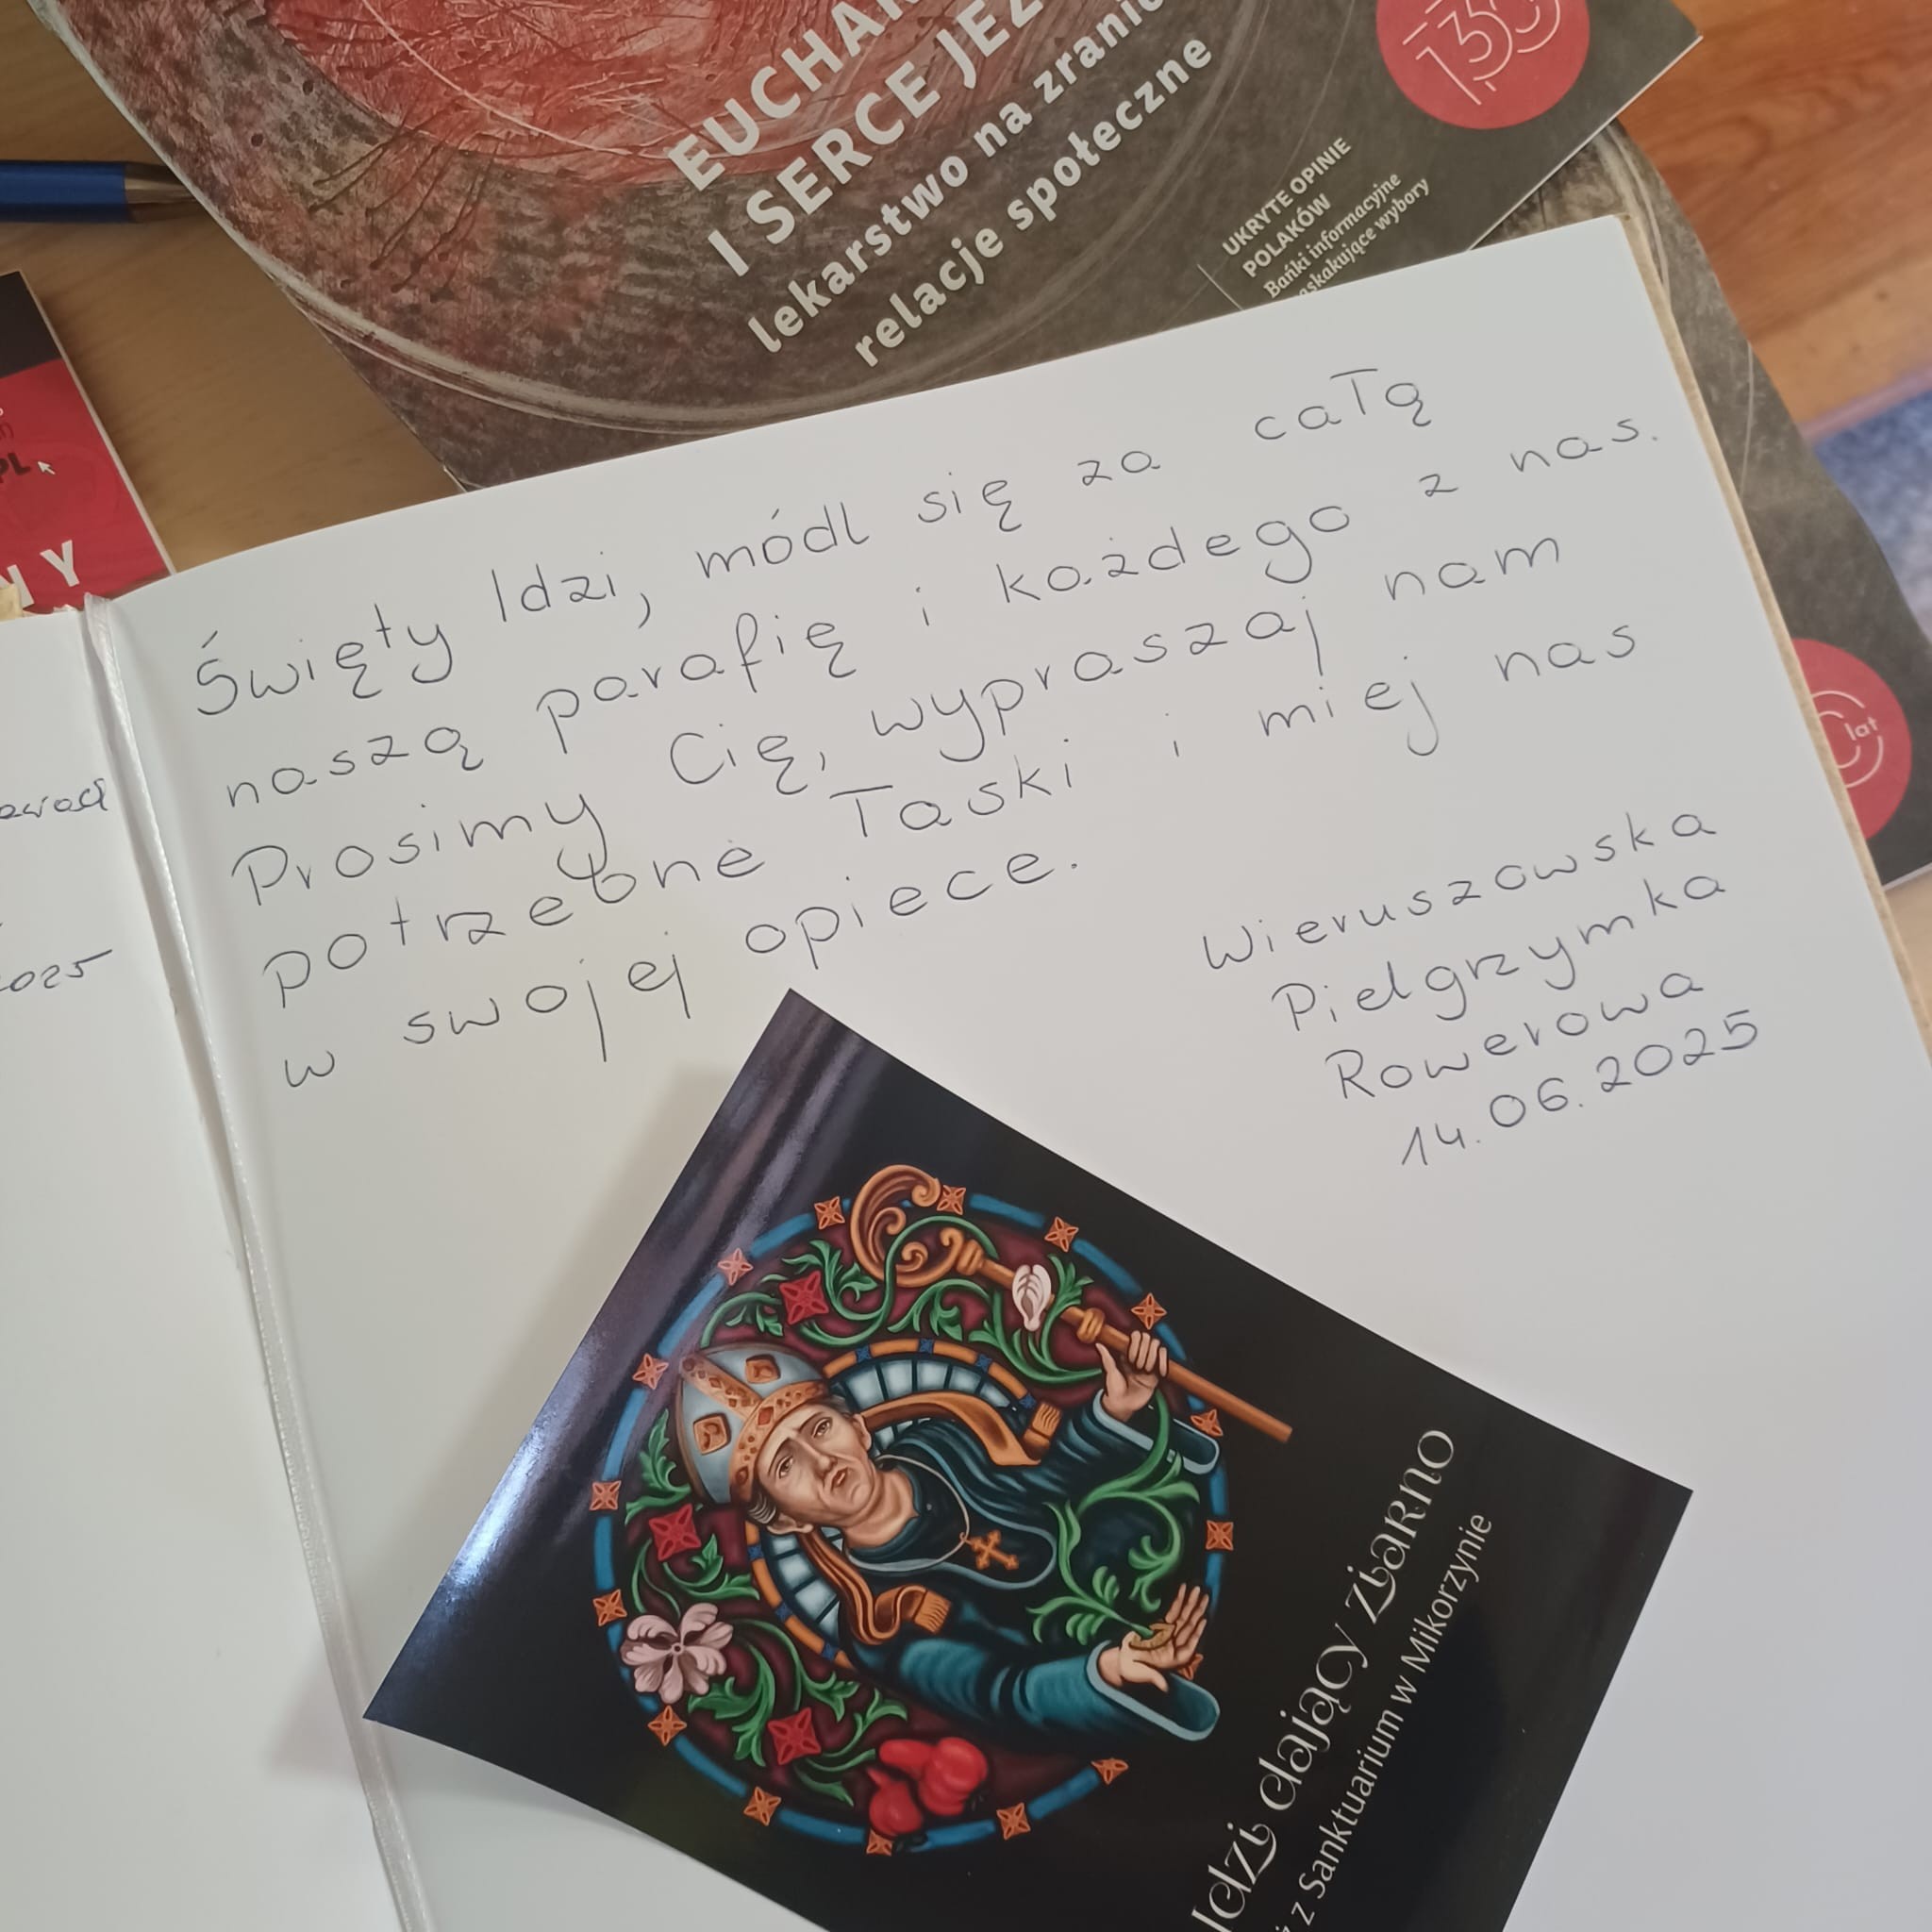 EUCHAR
I SERCE JEZ
lekarstwo na zranio
relacje społeczne
UKRYTE OPINIE
POLAKÓW
Bańki informacyjne
askakujące wybory
PL
NY
lat
2025
Święty Idzi, módl się za całą
naszą parafię i każdego z nas.
Prosimy Cię, wypraszaj nam
potrzebne łaski i miej nas
w swojej opiece.
Wieruszowska
Pielgrzymka
Rowerowa
14.06.2025
Idzi dający ziarno
z Sanktuarium w Mikorzynie